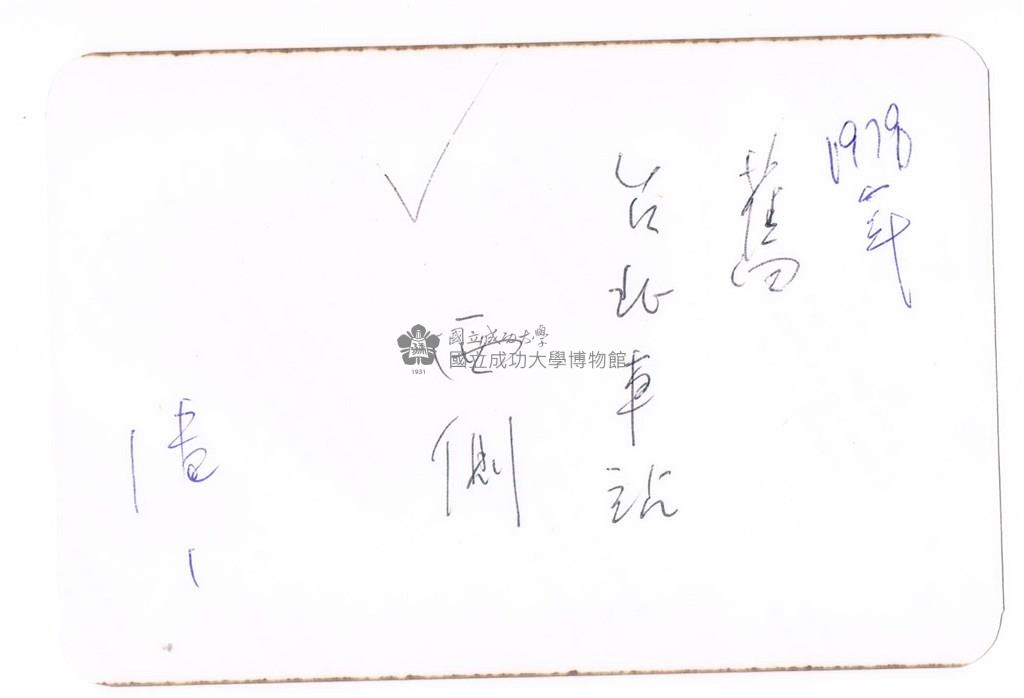 1979年
舊
台北車站
西側
國立成功大學
國立成功大學博物館
1931